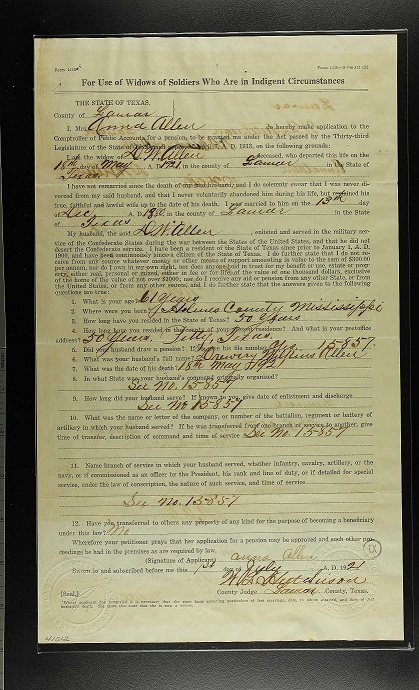 For Use of Widows of Soldiers Who Are in Indigent Circumstances
THE STATE OF TEXAS,
County of Lamar
I, Mrs. Anna Allen do hereby make application to the
Comptroller of Public Accounts for a pension, to be granted me under the Act passed by the Thirty-third
Legislature of the State of 1913, on the following grounds:
I am the widow of D. W. Allen deceased, who departed this life on the
18th day of May A. D. 1921 in the county of Lamar in the State of
Texas
I have not remarried since the death of my said husband, and I do solemnly swear that I was never di-
vorced from my said husband, and that I never voluntarily abandoned him during his life, but remained his
true, faithful and lawful wife up to the date of his death. I was married to him on the 13th day
of Dec A. D. in the county of Lamar in the State
of Texas
My husband, the said D. W. Allen enlisted and served in the military serv-
ice of the Confederate States during the war between the States of the United States, and that he did not
desert the Confederate service. I have been a resident of the State of Texas since prior to January 1, A. D.
1900, and have been continuously since a citizen of the State of Texas. I do further state that I do not re-
ceive from any source whatever money or other means of support amounting in value to the sum of $300.00
per annum, nor do I own in my own right, nor does anyone hold in trust for my benefit or use, estate or prop-
erty, either real, personal or mixed, either in fee or for life, of the value of one thousand dollars, exclusive
of the home of the value of not more than nor do I receive any aid or pension from any other State, or from
the United States, or from any other source, and I do further state that the answers given to the following
questions are true:
1. What is your age? 61 years
2. Where were you born? Holmes County Mississippi
3. How long have you resided in the State of Texas? 50 years
4. How long have you resided in the county of your present residence? And what is your postoffice
address? 50 years, Texas
5. Did your husband draw a pension? If so, give his file number. Yes. 15857.
6. What was your husband's full name? Drewery Wilkins Allen
7. What was the date of his death? 18th May 1921
8. In what State was your husband's command originally organized?
See No. 15857
9. How long did your husband serve? If known to you, give date of enlistment and discharge.
See No 15857
10. What was the name or letter of the company, or number of the battalion, regiment or battery of
artillery in which your husband served? If he was transferred from one branch of service to another, give
time of transfer, description of command and time of service See No. 15857
11. Name branch of service in which your husband served, whether infantry, cavalry, artillery, or the
navy, or if commissioned as an officer by the President, his rank and line of duty, or if detailed for special
service, under the law of conscription, the nature of such service, and time of service
See No. 15857
12. Have you transferred to others any property of any kind for the purpose of becoming a beneficiary
under this law? No
Wherefore your petitioner prays that her application for a pension may be approved and such other pro-
ceedings be had in the premises as are required by law.
(Signature of Applicant) Anna Allen
Sworn to and subscribed before me this 1st day of July A. D. 1921
Hutchinson
County Judge Lamar County, Texas.
[Seal.]
41012